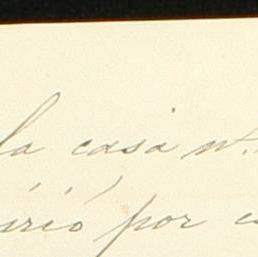 la casa nº.
irió por